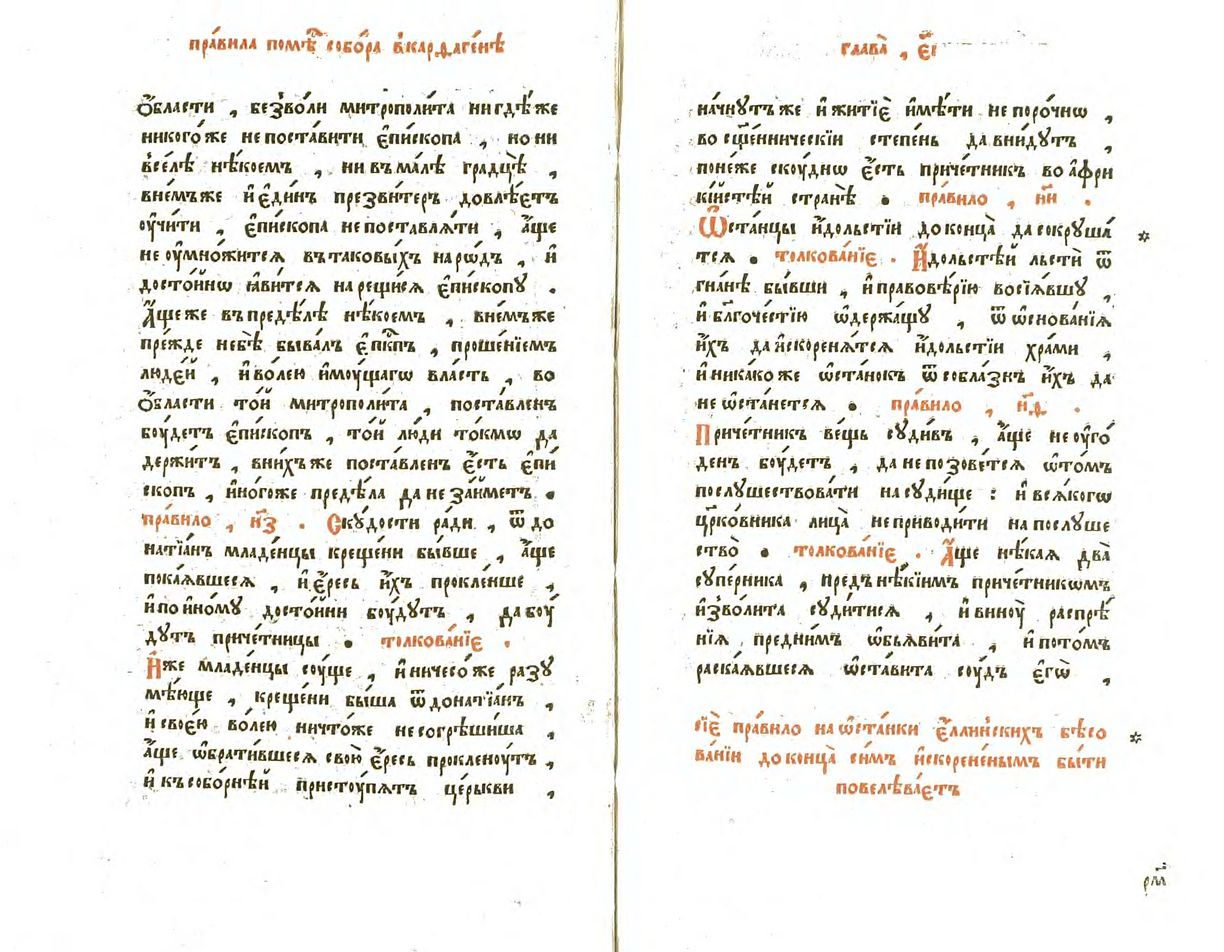 пра́вила помѣ́ собо́ра в̾карѳаге́нѣ
ѻ҆́бласти , безво́ли митрополи́та нигдѣ́же
никого́же непоста́вити є҆пи́скопа , нони
в̾селѣ̀ нѣ́коемъ , ни въма́лѣ градцѣ̀ ,
внемъже и҆ є҆ди́нъ презви́теръ довлѣ́етъ
оу҆чи́ти , є҆пи́скопа непоставлѧ́ти , а҆́ще
не оу҆мно́житсѧ втаковы́хъ наро́дъ , и҆
досто́йнѡ ꙗ҆ви́тсѧ нарещи́сѧ є҆пи́скопꙋ .
А҆́щеже въпредѣ́лѣ нѣ́коемъ , внемъже
пре́жде небѣ̀ быва́лъ є҆пⷭ҇кпъ , проше́нїемъ
люде́й , и҆во́лею и҆мꙋ́щагѡ вла́сть , во
ѻ҆́бласти то́й митрополи́та , поста́вленъ
бꙋ́детъ є҆пи́скопъ , то́й лю́ди то́кмѡ да
держи́тъ , вни́хъже поста́вленъ є҆́сть є҆пи
скопъ , и҆но́гоже предѣ́ла да не за́йметъ .
пра́вило , н҃з . Скꙋ́дости ра́ди , ѿ до
натїа́нъ младе́нцы креще́ни бы́вше , а҆́ще
пока́ѧвшесѧ , и҆ є҆́ресь и҆́хъ прокле́нше ,
и҆по и҆но́мꙋ досто́йни бꙋ́дꙋтъ , да бꙋ́
дꙋтъ приче́тницы . толкова́нїе .
И҆̀же младе́нцы сꙋ́ще , и҆ничесо́же разꙋ
мѣ́юще , креще́ни бы́ша ѿ донатїа́нъ ,
и҆ свое́ю во́лею ничто́же несогрѣши́ша ,
а҆́ще ѡ҆брати́вшесѧ свою̀ є҆́ресь проклену́тъ ,
и҆ късобо́рнѣй пристꙋ́пѧтъ це́рькви ,
глава̀ , є҃і
начнꙋ́тъже и҆ житїѐ и҆мѣ́ти непоро́чнѡ ,
во сщ҃е́нническїи степе́нь да вни́дꙋтъ ,
поне́же скꙋ́днѡ є҆́сть приче́тникъ во а҆фри
кі́йстѣй странѣ̀ . пра́вило , н҃и .
Ѡ҆ста́нцы и҆́дольстїи доконца̀ да сокрꙋша́
тсѧ . толкова́нїе . И҆́дольстѣй льстѝ ѿ
гна́нѣ бы́вши , и҆ правовѣ́рїю восїѧ́вшꙋ ,
и҆ бл҃гоче́стїю ѡ҆держа́щꙋ , ѿ ѡ҆снова́нїѧ
и҆́хъ да и҆скоренѧ́тсѧ и҆́дольстїи хра́ми ,
и҆ ника́коже ѡ҆ста́нокъ ѿ собла́знъ и҆́хъ да
не ѡ҆ста́нетсѧ . пра́вило , н҃ѳ .
Приче́тникъ ве́щь сꙋди́въ , а҆́ще не оу҆го́
денъ бꙋ́детъ , да не позове́тсѧ ѡ҆то́мъ
послꙋ́шествовати насꙋди́ще : и҆ всѧ́когѡ
цр҃ко́вника лица̀ неприводи́ти напослꙋше
ство̀ . толкова́нїе . А҆́ще нѣ́каѧ два̀
сꙋпе́рника , предънѣ́кїимъ приче́тникѡмъ
и҆зво́лита сꙋди́тисѧ , и҆ винꙋ̀ распрѣ̀
нїѧ предни́мъ ѡ҆бьѧви́та , и҆ пото́мъ
раска́ѧвшесѧ ѡ҆ста́вита сꙋ́дъ є҆гѡ̀ ,
сїѐ пра́вило на ѡ҆ста́нки є҆́ллинскихъ бѣсо
ва́нїи доконца̀ си́мъ и҆скорене́нымъ бы́ти
повелѣва́етъ
рм҃